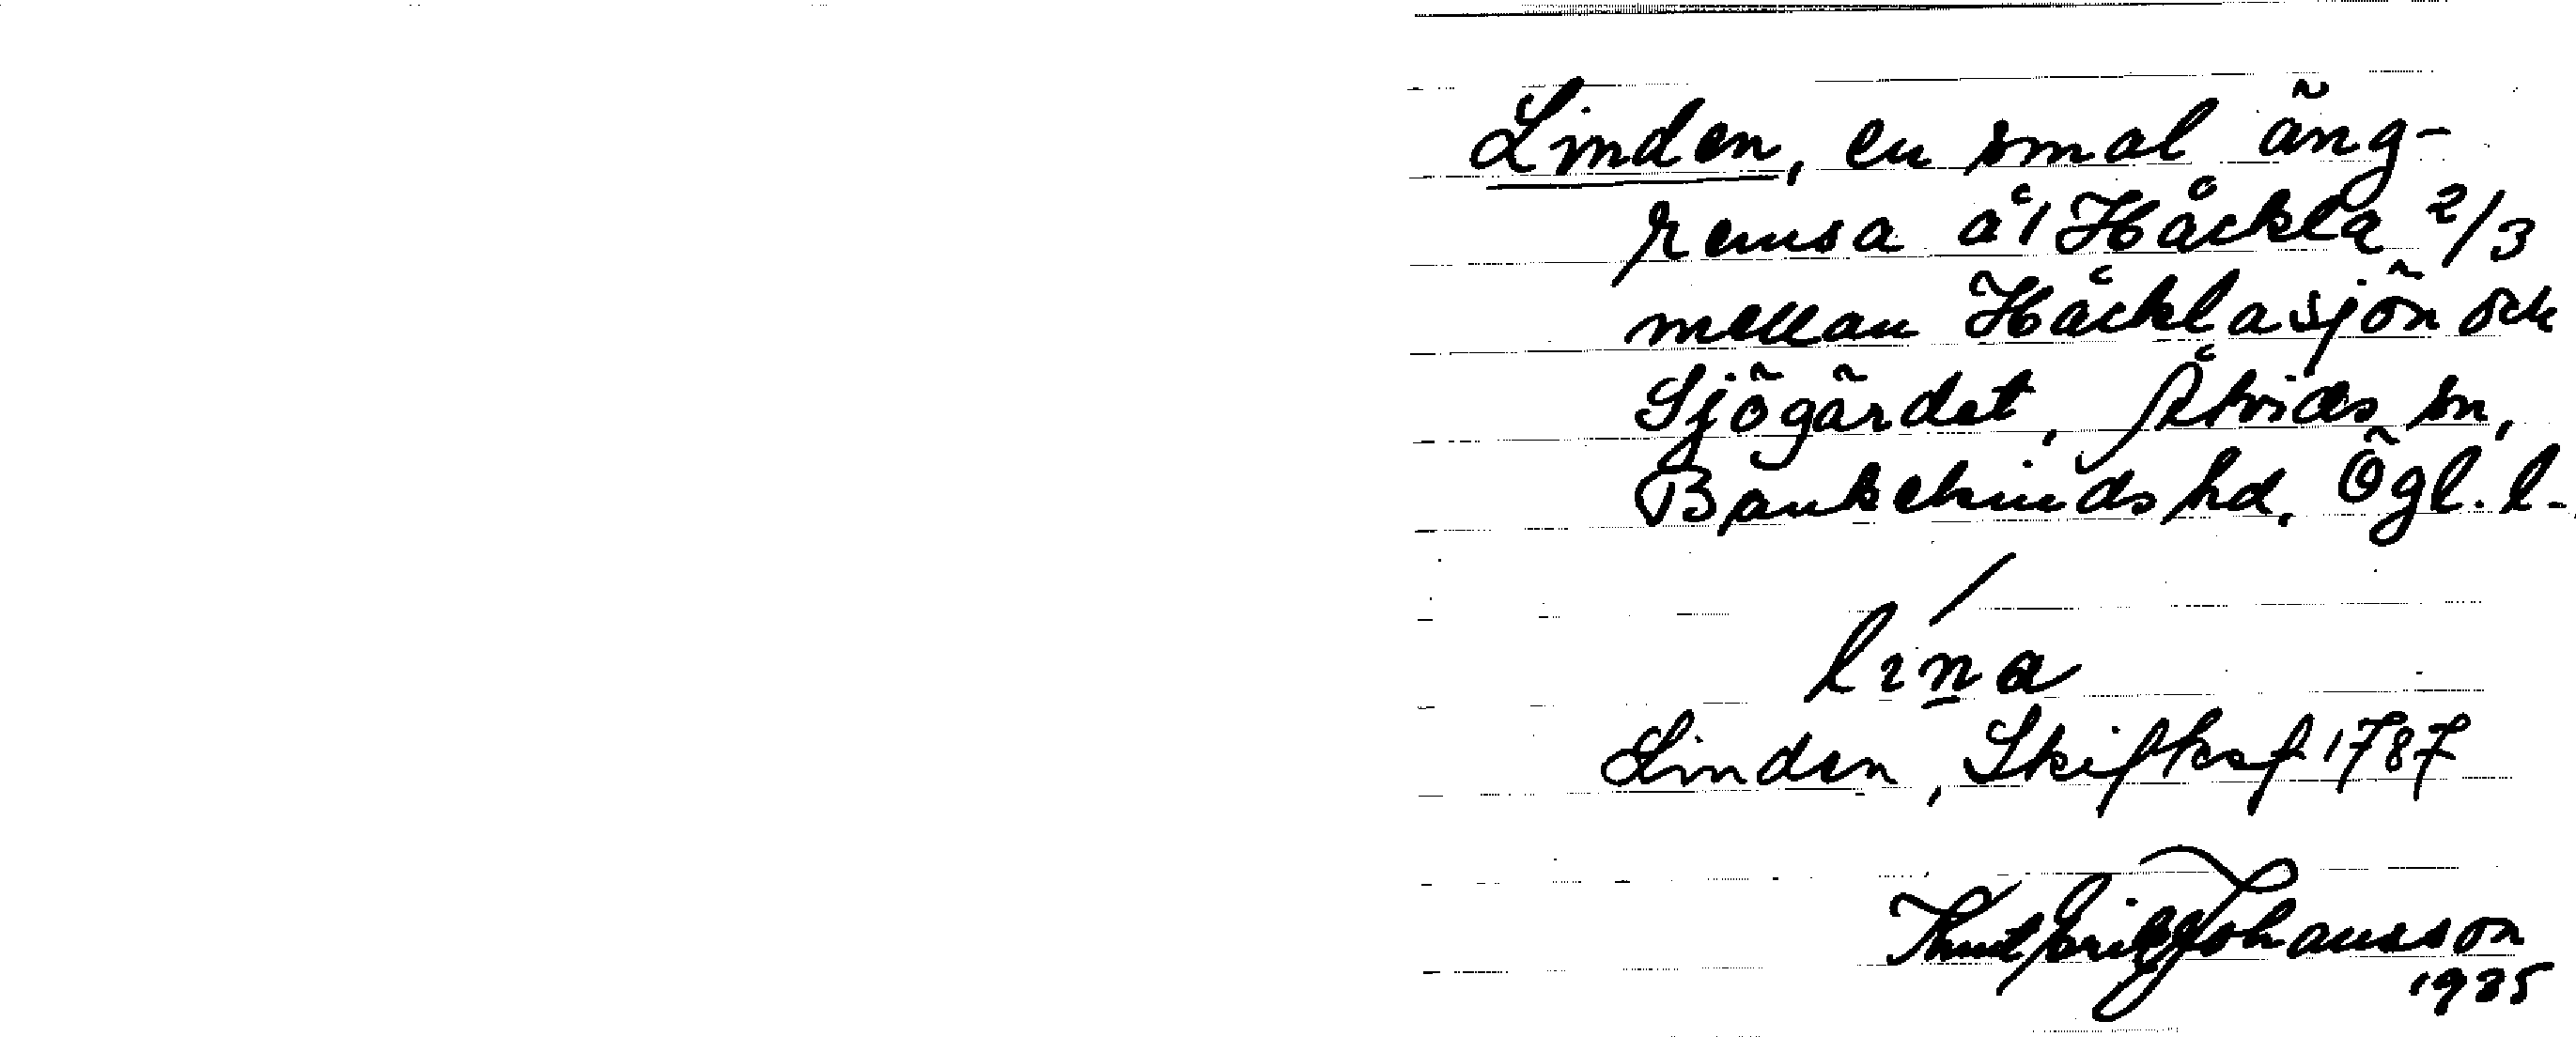 Linden, en smal äng-
remsa å 1 Håckla 2/3
mellan Håcklasjön och
Sjögärdet, Åtvids sn,
Bankekinds hd, Ögl. l.
/
lina
Linden, Skifteskf 1787
Knut Erik Johansson
1935